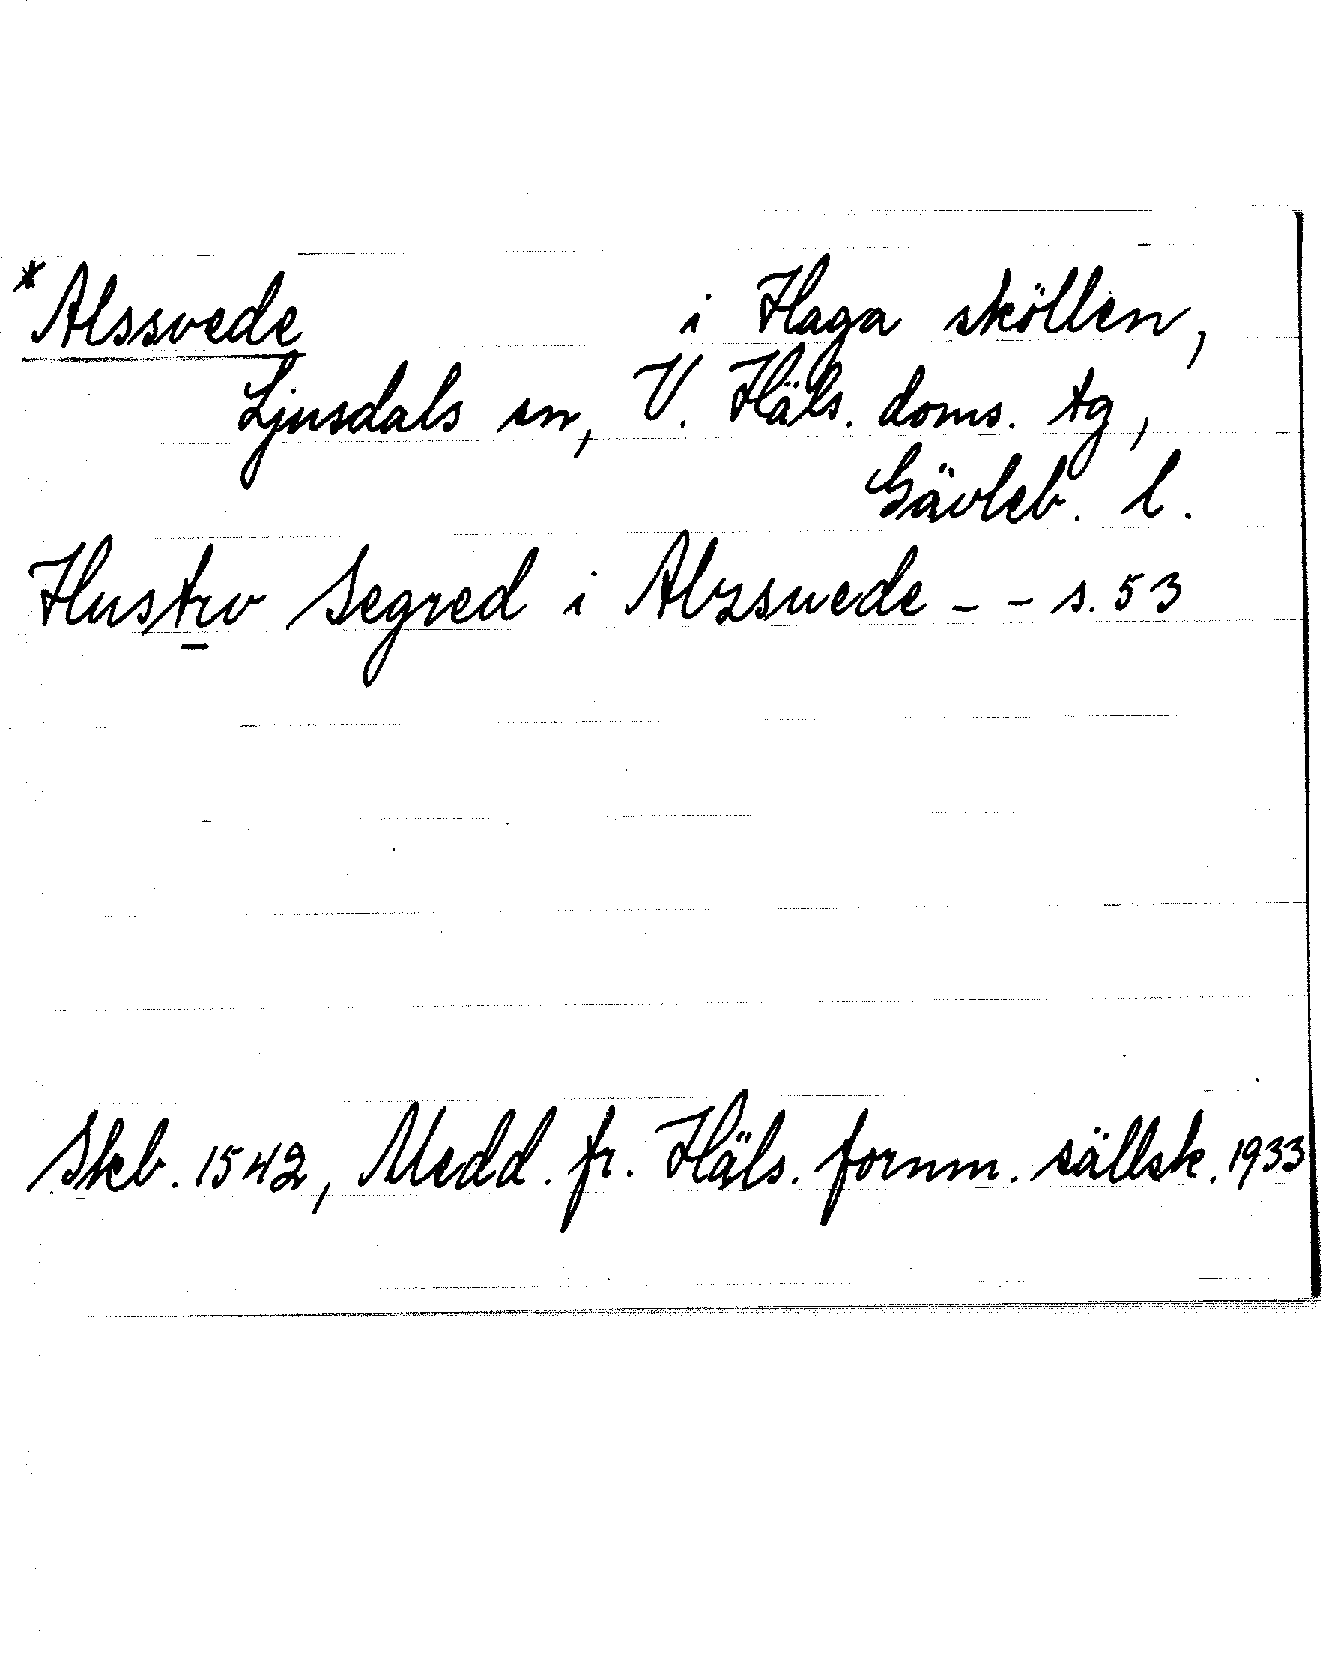 *Alssvede i Haga sköllen,
Ljusdals sn, V. Häls. doms. tg,
Gävleb. l.
Hustrv Segred i Alzsuede - - s. 53
Skb. 1542, Medd. fr. Häls. fornm. sällsk. 1933